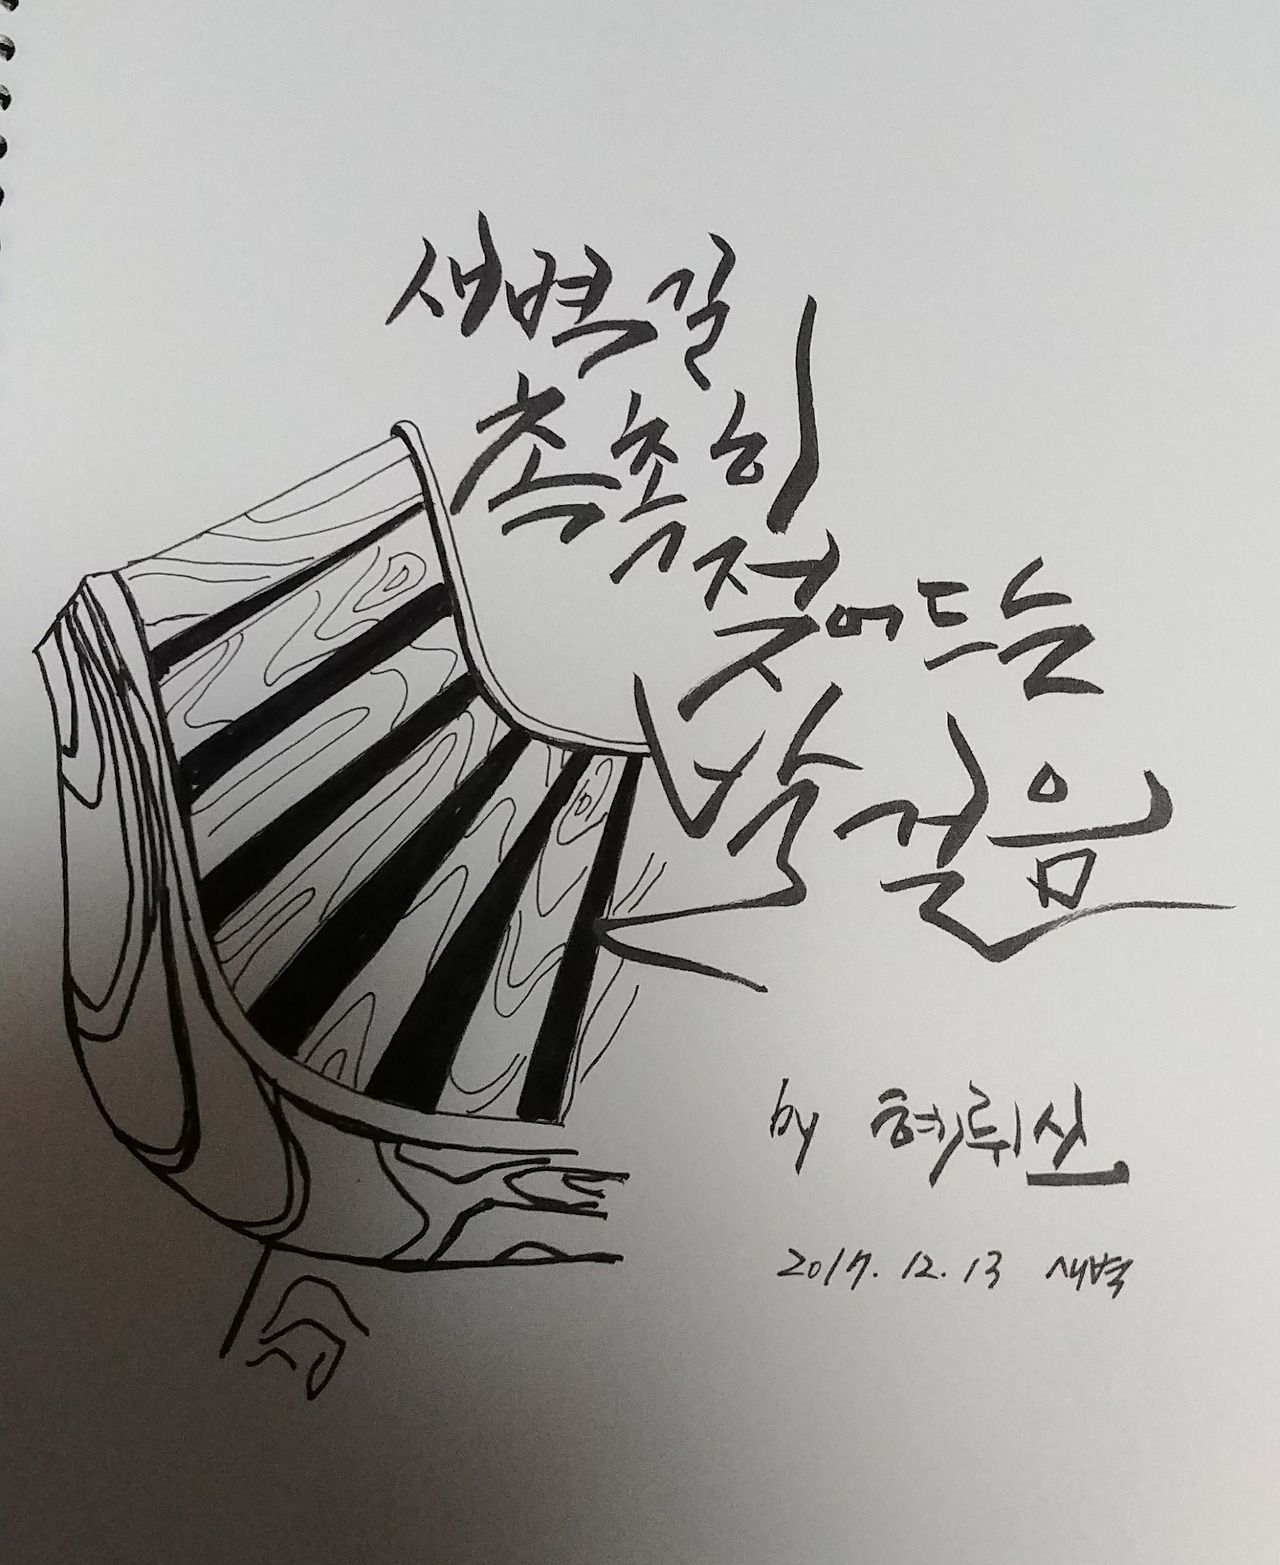 새벽길
촉촉히
젖어드는
발걸음
by 혜뤼신
2017. 12. 13 새벽